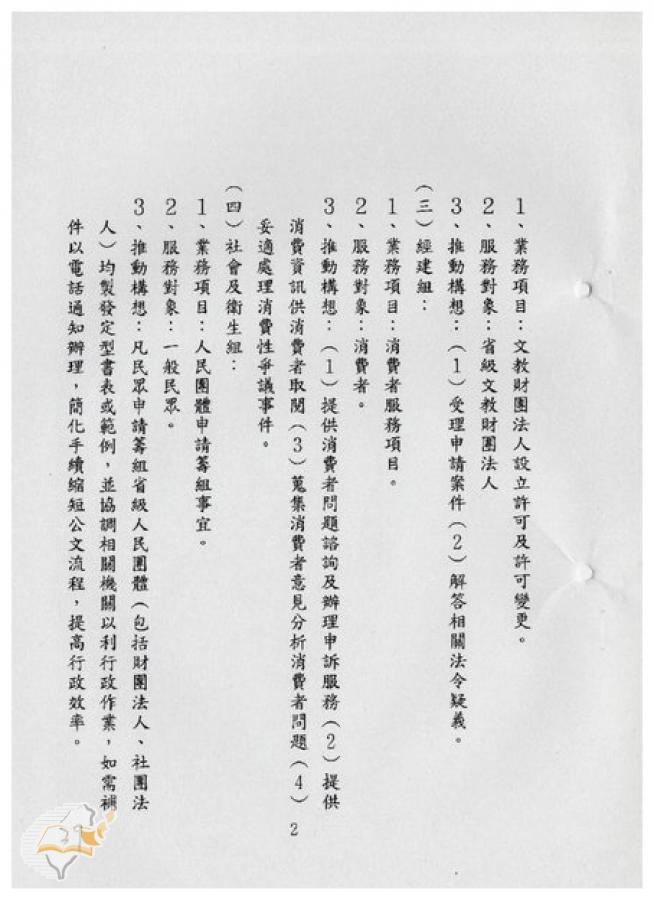 1、業務項目：文教財團法人設立許可及許可變更。
2、服務對象：省級文教財團法人
3、推動構想：（1）受理申請案件（2）解答相關法令疑義。
（三）經建組：
1、業務項目：消費者服務項目。
2、服務對象：消費者。
3、推動構想：（1）提供消費者問題諮詢及辦理申訴服務（2）提供
消費資訊供消費者取閱（3）蒐集消費者意見分析消費者問題（4）
妥適處理消費性爭議事件。
（四）社會及衛生組：
1、業務項目：人民團體申請籌組事宜。
2、服務對象：一般民眾。
3、推動構想：凡民眾申請籌組省級人民團體（包括財團法人、社團法
人）均製發定型書表或範例，並協調相關機關以利行政作業，如需補
件以電話通知辦理，簡化手續縮短公文流程，提高行政效率。
2